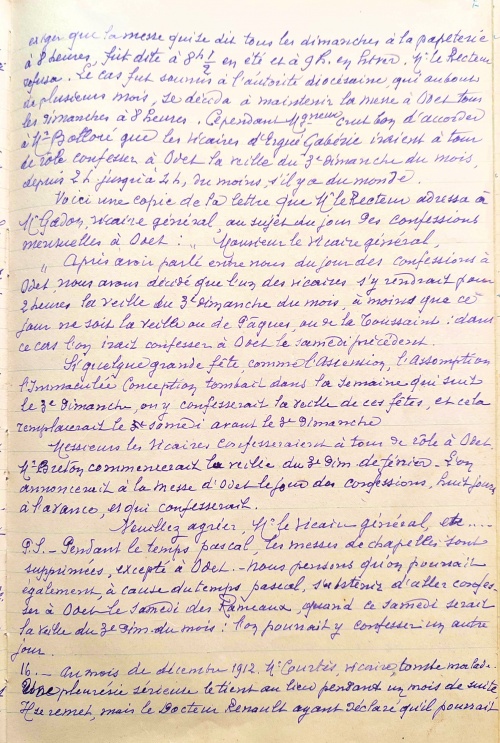 exiger que la messe qui se dit tous les dimanches à la papeterie
à 8 heures, fût dite à 8h ½ en été et à 9h. en hiver. Mr le Recteur
refusa. Le cas fut soumis à l'autorité diocésaine, qui au bout
de plusieurs mois, se décida à maintenir la messe à Odet tous
les dimanches à 8 heures. Cependant Mgneur crut bon d'accorder
à Mr Bolloré que les vicaires d'Ergué Gabéric iraient à tour
de rôle confesser à Odet la veille du 3e dimanche du mois,
depuis 2h jusqu'à 4h, du moins, s'il y a du monde.
Voici une copie de la lettre que Mr le Recteur adressa à
Mr Gadon, vicaire général, au sujet du jour des confessions
mensuelles à Odet : " Monsieur le Vicaire général,
" Après avoir parlé entre nous du jour des confessions à
Odet, nous avons décidé que l'un des vicaires s'y rendrait pour
2 heures la veille du 3e dimanche du mois, à moins que ce
jour ne soit la veille ou de Pâques, ou de la Toussaint : dans
ce cas l'on irait confesser à Odet le samedi précédent.
Si quelque grande fête, comme l'Ascension, l'Assomption
l'Immaculée Conception tombait dans la semaine qui suit
le 3e Dimanche, on y confesserait la veille de ces fêtes, et cela
remplacerait le samedi avant le 3e Dimanche
Messieurs les Vicaires confesseraient à tour de rôle à Odet
Mr Breton commencerait la veille du 3e dim. de février. L'on
annoncerait à la messe d'Odet le jour des confessions, huit jours
à l'avance, et qui confesserait.
Veuillez agréer, Mr le Vicaire général, etc ....
P.S. - Pendant le temps pascal, les messes de chapelles sont
supprimées, excepté à Odet. - Nous pensons qu'on pourrait
également, à cause du temps pascal, s'abstenir d'aller confes-
ser à Odet le samedi des Rameaux, quand ce samedi serait
la veille du 3e dim. du mois : l'on pourrait y confesser un autre
jour.
16. - Au mois de décembre 1912. Mr Courtès, vicaire, tombe malade.
Une pleurésie sérieuse le tient au lieu pendant un mois de suite
Il se remet, mais le Docteur Renault ayant déclaré qu'il pourrait